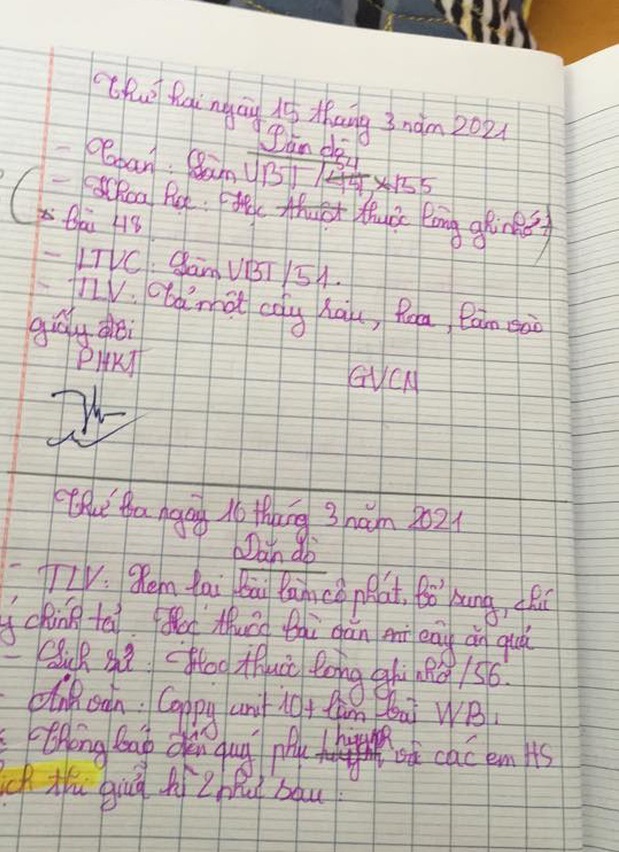 Thứ hai ngày 15 tháng 3 năm 2021
Dặn dò
- Toán: Làm VBT / 54 x 155
- Khoa học: Học thuộc lòng ghi nhớ
x bài 48
- LTVC: Làm VBT / 51.
- TLV: Tả một cây rau, hoa, làm vào
giấy đôi
PHKT
GVCN
Thứ ba ngày 16 tháng 3 năm 2021
Dặn dò
- TLV: Xem lại bài làm cô phát, bổ sung, chú
ý chính tả. Học thuộc bài văn cây ăn quả
- Lịch sử: Học thuộc lòng ghi nhớ / 56.
- Anh văn: Coppy unit 10 + làm bài WB.
Thông báo đến quý phụ huynh và các em HS
ịch thi giữa kì 2 như sau: